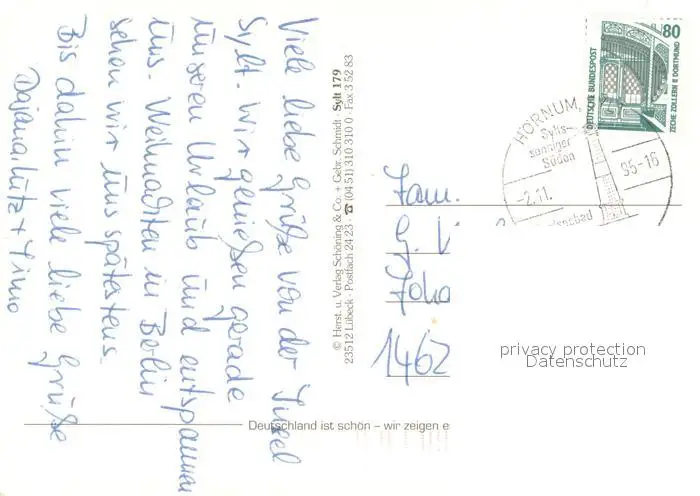 Viele liebe Grüße von der Insel
Sylt. Wir genießen gerade
unseren Urlaub und entspannen
uns. Weihnachten in Berlin
sehen wir uns spätestens.
Bis dahin viele liebe Grüße
Dajana, Lutz + Timo
© Herst. u. Verlag Schöning & Co. + Gebr. Schmidt · Sylt 179
23512 Lübeck · Postfach 24 23 · ☎ (04 51) 310 310 0 · Fax 3 52 83
Deutschland ist schön – wir zeigen e
80
DEUTSCHE BUNDESPOST
ZECHE ZOLLERN II DORTMUND
HÖRNUM,
Sylts
sonniger
Süden
-2.11.
95-16
Fam.
G. V
Joha
1462
privacy protection
Datenschutz